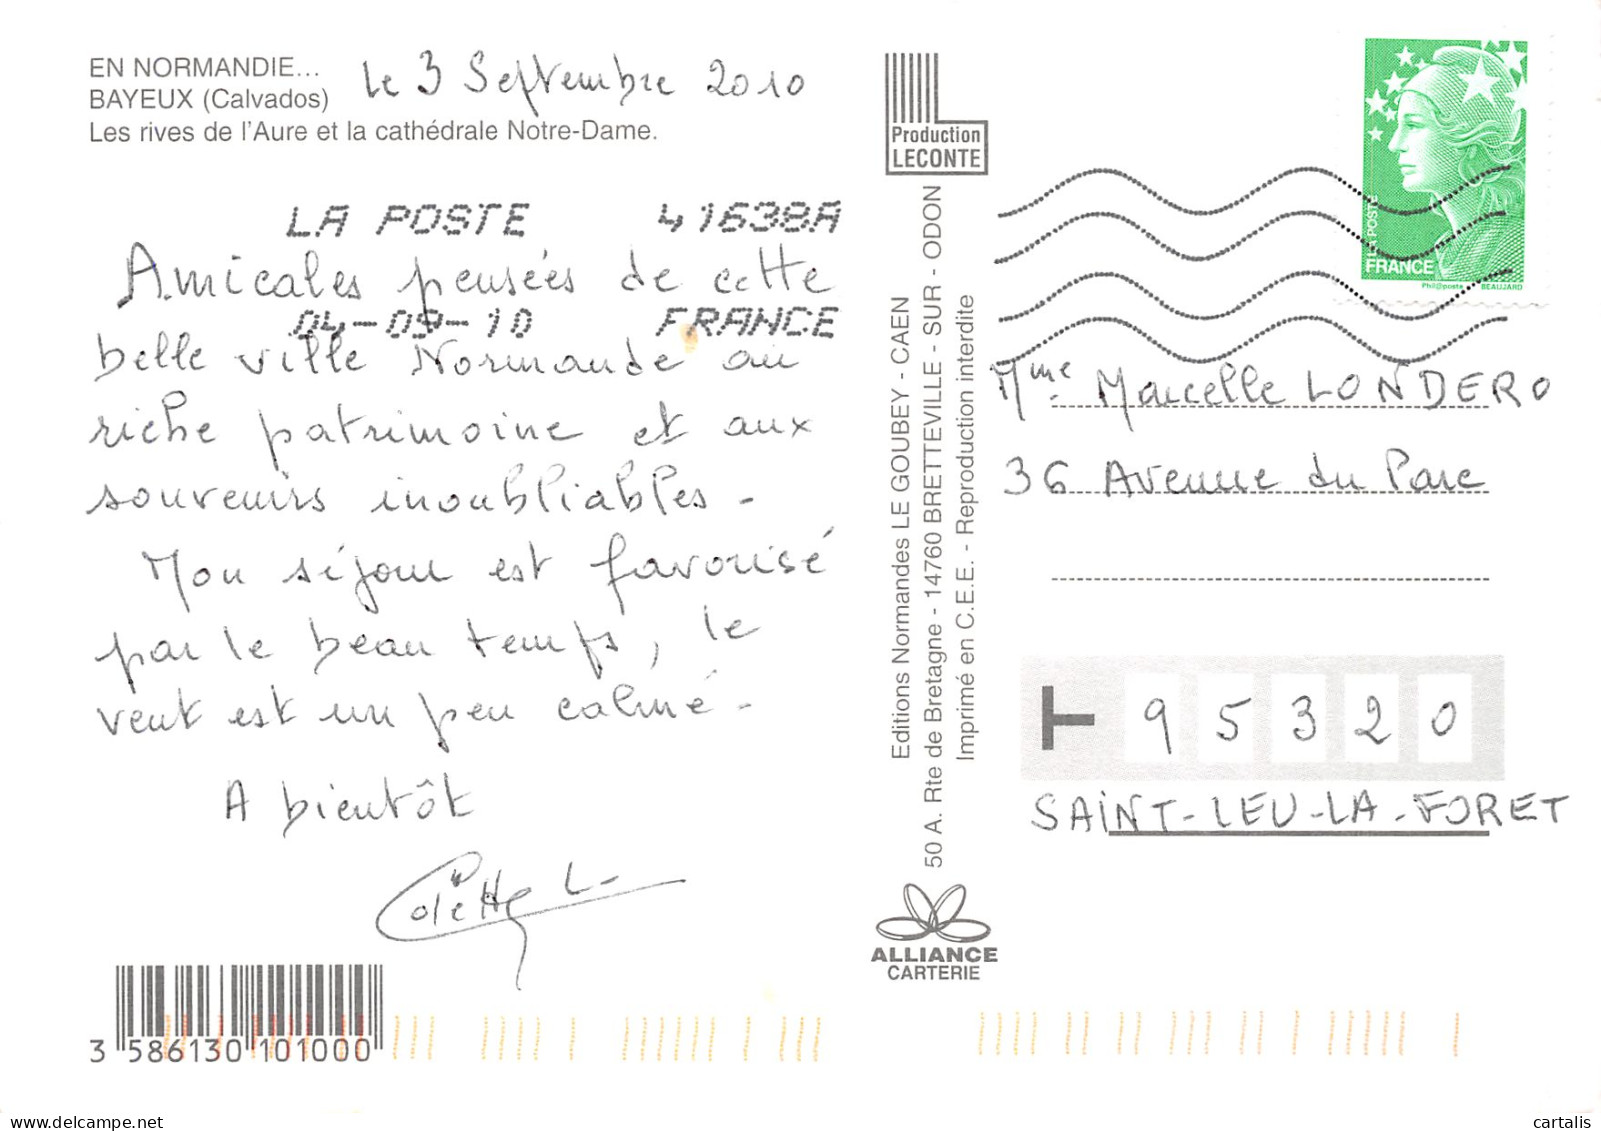 EN NORMANDIE...
BAYEUX (Calvados)
Les rives de l'Aure et la cathédrale Notre-Dame.
le 3 Septembre 2010
LA POSTE 41638A
04-09-10 FRANCE
Amicales pensées de cette
belle ville Normande au
riche patrimoine et aux
souvenirs inoubliables -
Mon séjour est favorisé
par le beau temps, le
vent est un peu calmé -
A bientôt
Colette L-
3 586130 101000
Production
LECONTE
Editions Normandes LE GOUBEY - CAEN
50 A. Rte de Bretagne - 14760 BRETTEVILLE - SUR - ODON
Imprimé en C.E.E. - Reproduction interdite
ALLIANCE
CARTERIE
LA POSTE
FRANCE
Phil@poste BEAUJARD
Mme Marcelle LONDERO
36 Avenue du Parc
95320
SAINT-LEU-LA-FORET
cartalis www.delcampe.net